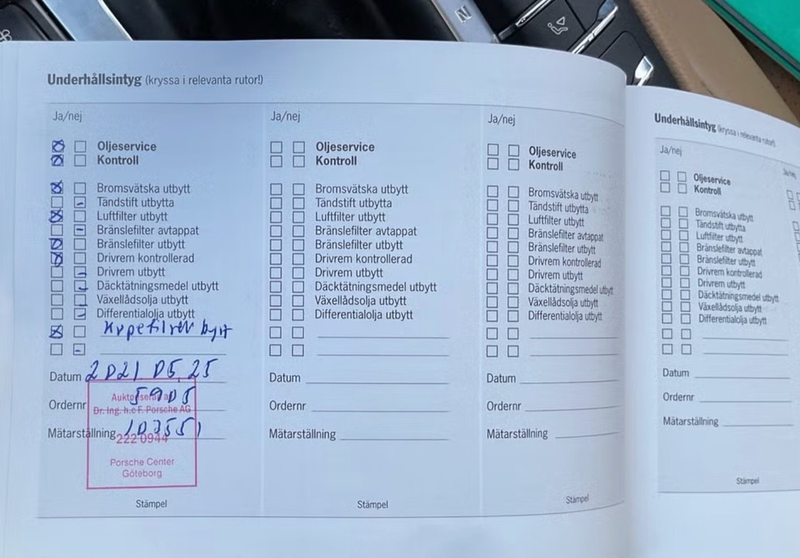 Underhållsintyg (kryssa i relevanta rutor!)
Ja/nej
Oljeservice
Kontroll
Bromsvätska utbytt
Tändstift utbytta
Luftfilter utbytt
Bränslefilter avtappat
Bränslefilter utbytt
Drivrem kontrollerad
Drivrem utbytt
Däcktätningsmedel utbytt
Växellådsolja utbytt
Differentialolja utbytt
Datum 2021 05 25
Ordernr 5905
Mätarställning
Dr. Ing. h.c F. Porsche AG
222 0944
Porsche Center
Göteborg
Stämpel
Ja/nej
Oljeservice
Kontroll
Bromsvätska utbytt
Tändstift utbytta
Luftfilter utbytt
Bränslefilter avtappat
Bränslefilter utbytt
Drivrem kontrollerad
Drivrem utbytt
Däcktätningsmedel utbytt
Växellådsolja utbytt
Differentialolja utbytt
Datum
Ordernr
Mätarställning
Stämpel
Ja/nej
Oljeservice
Kontroll
Bromsvätska utbytt
Tändstift utbytta
Luftfilter utbytt
Bränslefilter avtappat
Bränslefilter utbytt
Drivrem kontrollerad
Drivrem utbytt
Däcktätningsmedel utbytt
Växellådsolja utbytt
Differentialolja utbytt
Datum
Ordernr
Mätarställning
Stämpel
Underhållsintyg (kryssa i relevanta rutor!)
Ja/nej
Oljeservice
Kontroll
Bromsvätska utbytt
Tändstift utbytta
Luftfilter utbytt
Bränslefilter avtappat
Bränslefilter utbytt
Drivrem kontrollerad
Drivrem utbytt
Däcktätningsmedel utbytt
Växellådsolja utbytt
Differentialolja utbytt
Datum
Ordernr
Mätarställning
Stämpel
Ja/nej